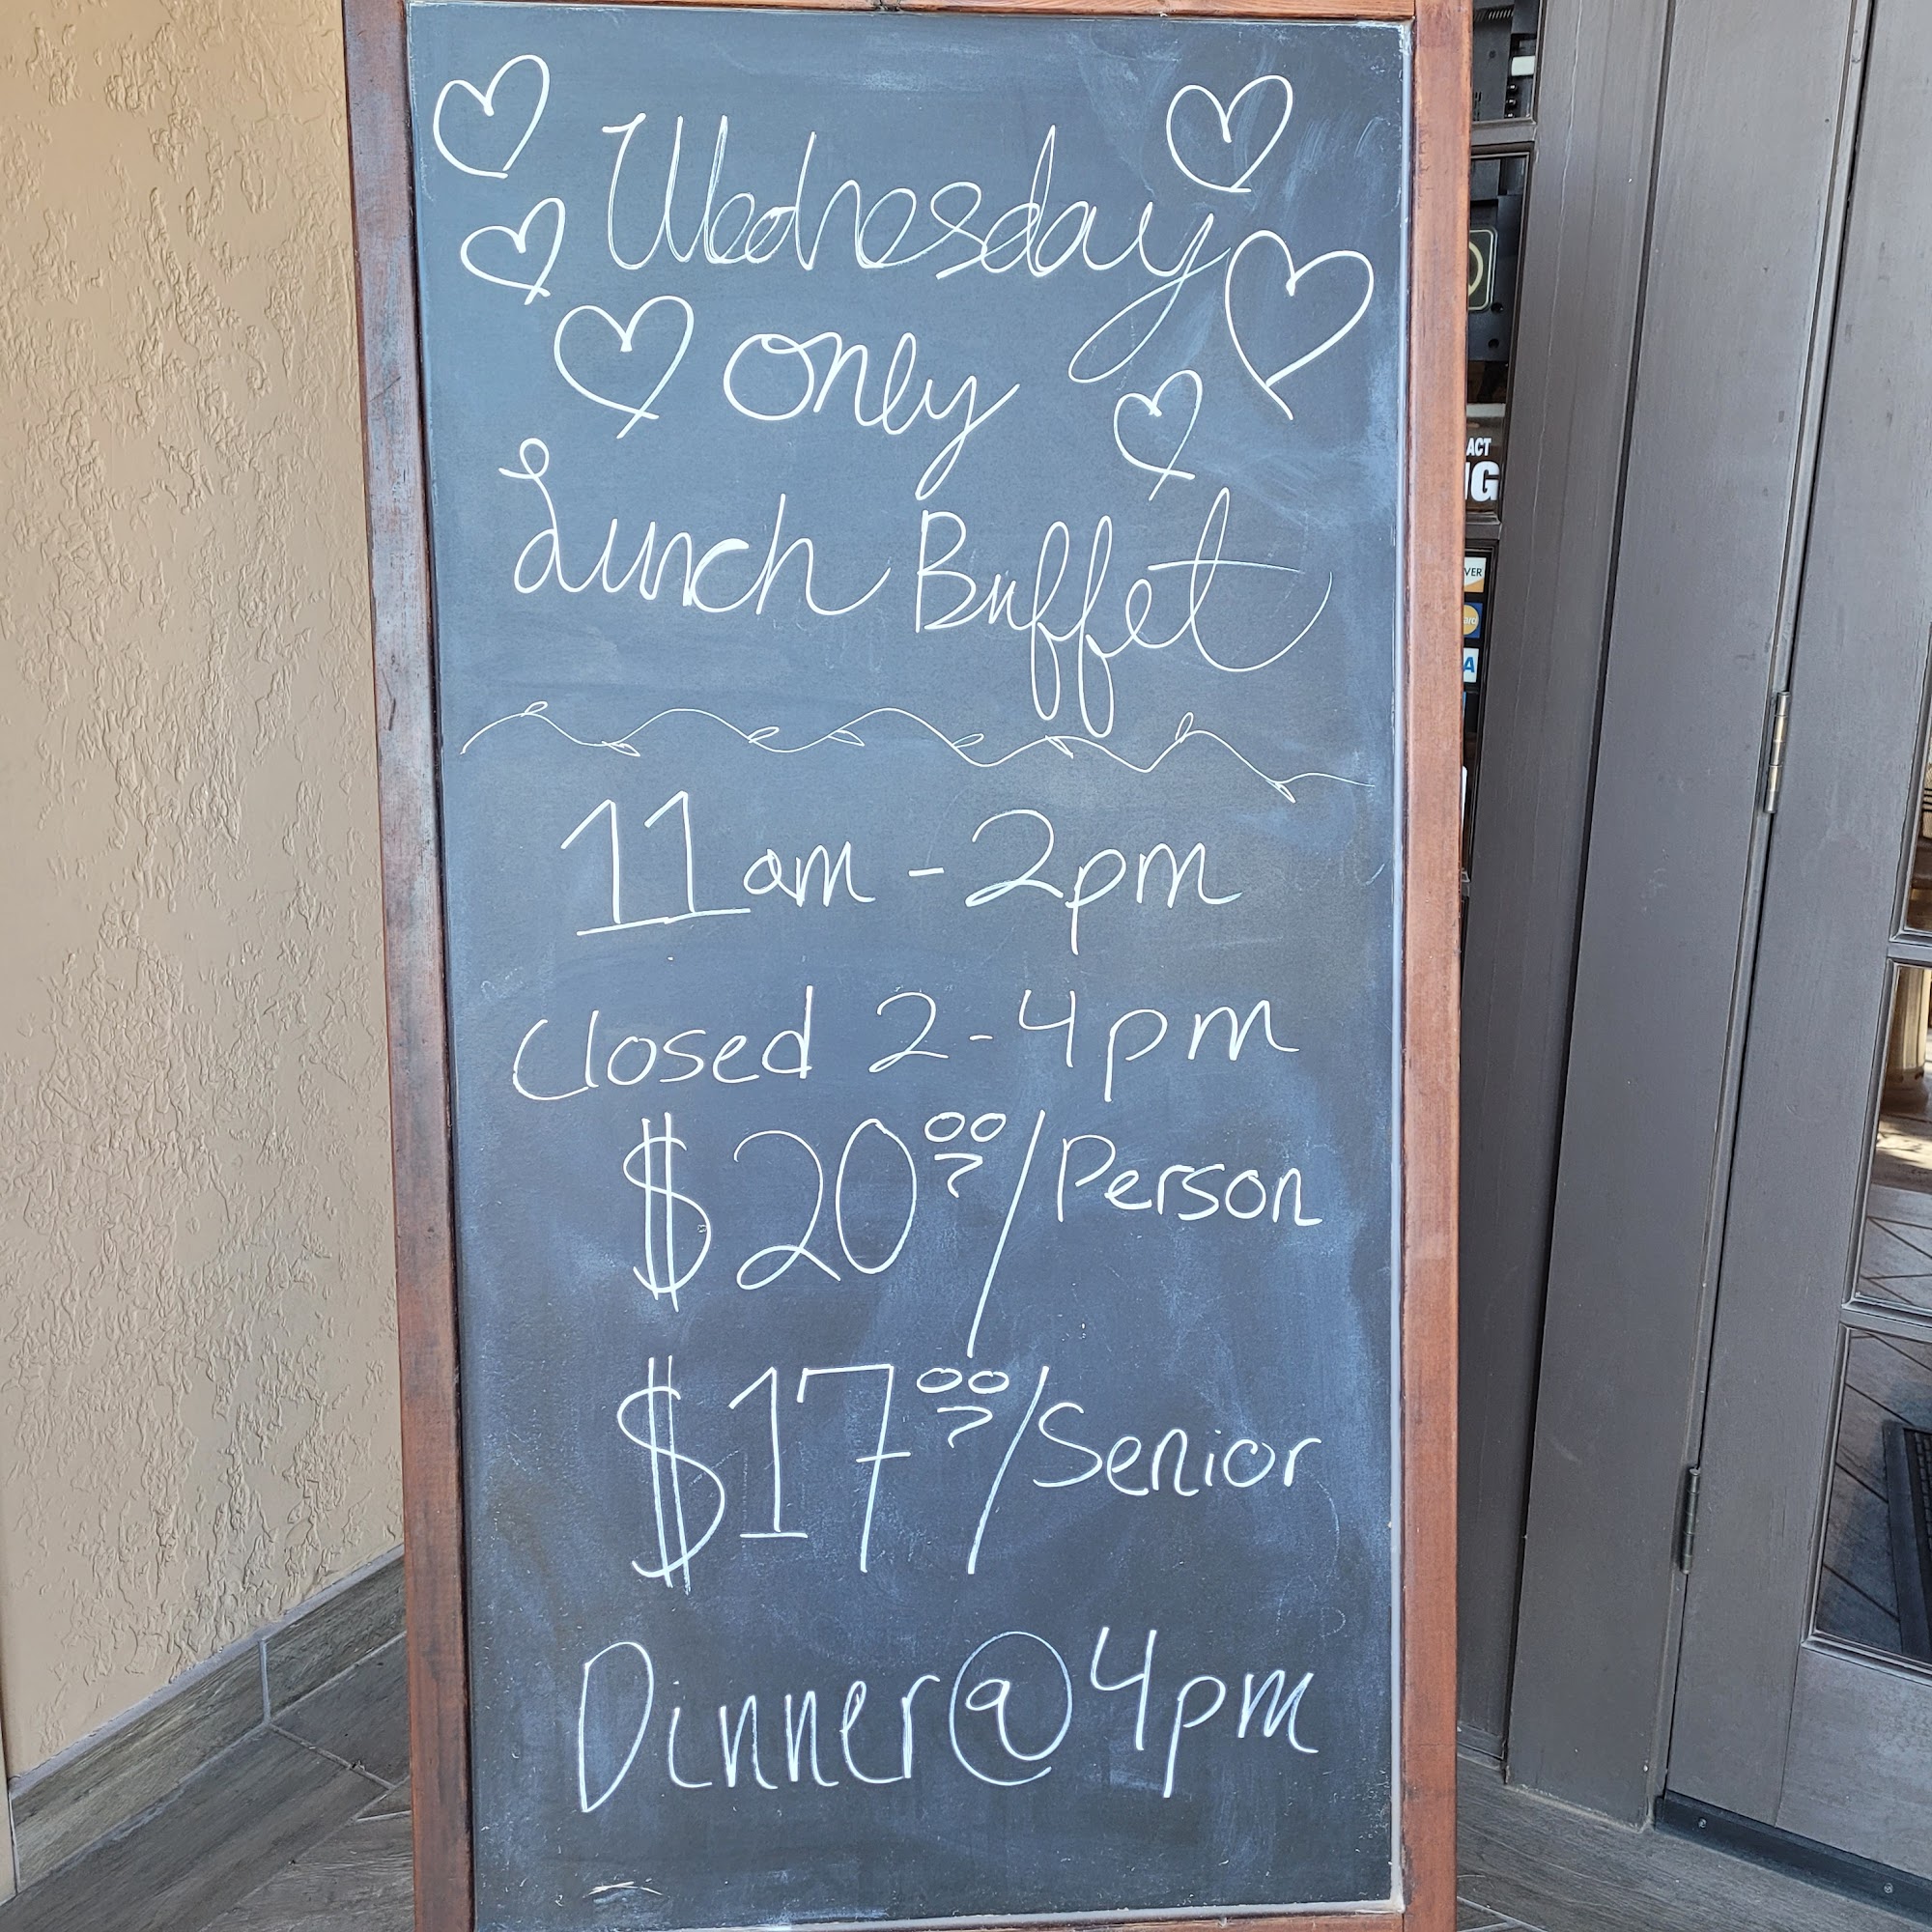 Wednesday
only
Lunch Buffet
11am - 2pm
Closed 2-4pm
$20.00/Person
$17.00/Senior
Dinner@4pm
ACT
VER